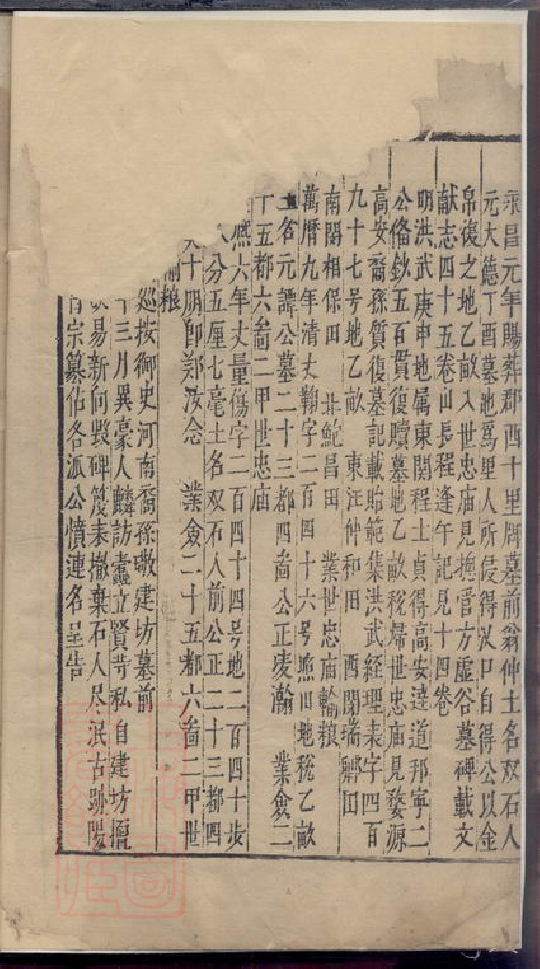 永昌元年賜葬郡西十里牌墓前翁仲土名双石人
元大德丁酉墓地為里人所侵得汊口自得公以金
帛復之地乙畝入世忠庙見摠管方虚谷墓碑載文
献志四十五卷山長程逢午記見十四卷
明洪武庚申地属東関程士貞得高安逹道邦寜二
公偹鈔五百貫復贖墓地乙畝税歸世忠庙見婺源
高安裔孫質復墓記載貽範集洪武経理耒字四百
九十七号地乙畝 東汪仲和田 西関璚
南関相保田 北鮑昌田 業世忠庙輸粮
萬暦九年清丈鞠字二百四十六号熈川地税乙畝
土名元譚公墓二十三都四啚公正凌瀚 業僉二
十五都六啚二甲世忠庙
熈六年丈量傷字二百四十四号地二百四十歩
八分五厘七毫土名双石人前公正二十三都四
十朋即鄭汝念 業僉二十五都六啚二甲世
輸粮
巡按御史河南裔孫墩建坊墓前
年三月異豪人麟訪蠧立賢寺私自建坊
易新向毀碑筏耒撤棄石人尽泯古跡
宗纂佔各派公憤連名呈告